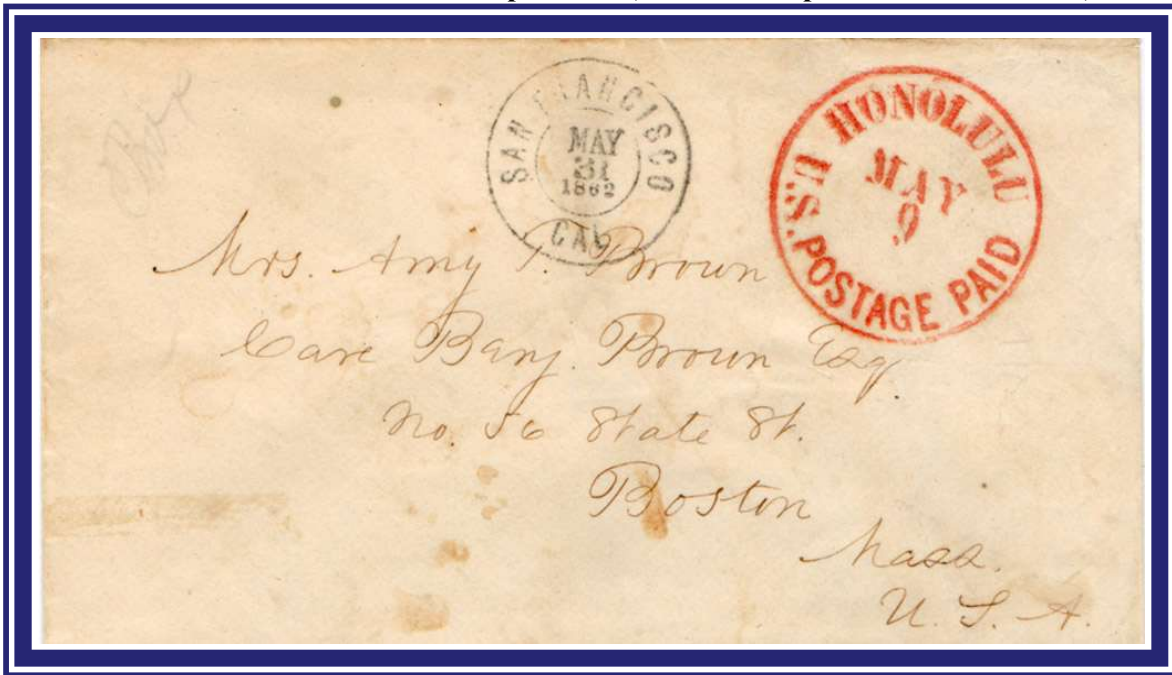 SAN FRANCISCO
MAY
31
1862
CAL
HONOLULU
MAY
9
U.S. POSTAGE PAID
Mrs. Amy P. Brown
Care Banj. Brown Esq.
No. 56 State St.
Boston
Mass.
U. S. A.